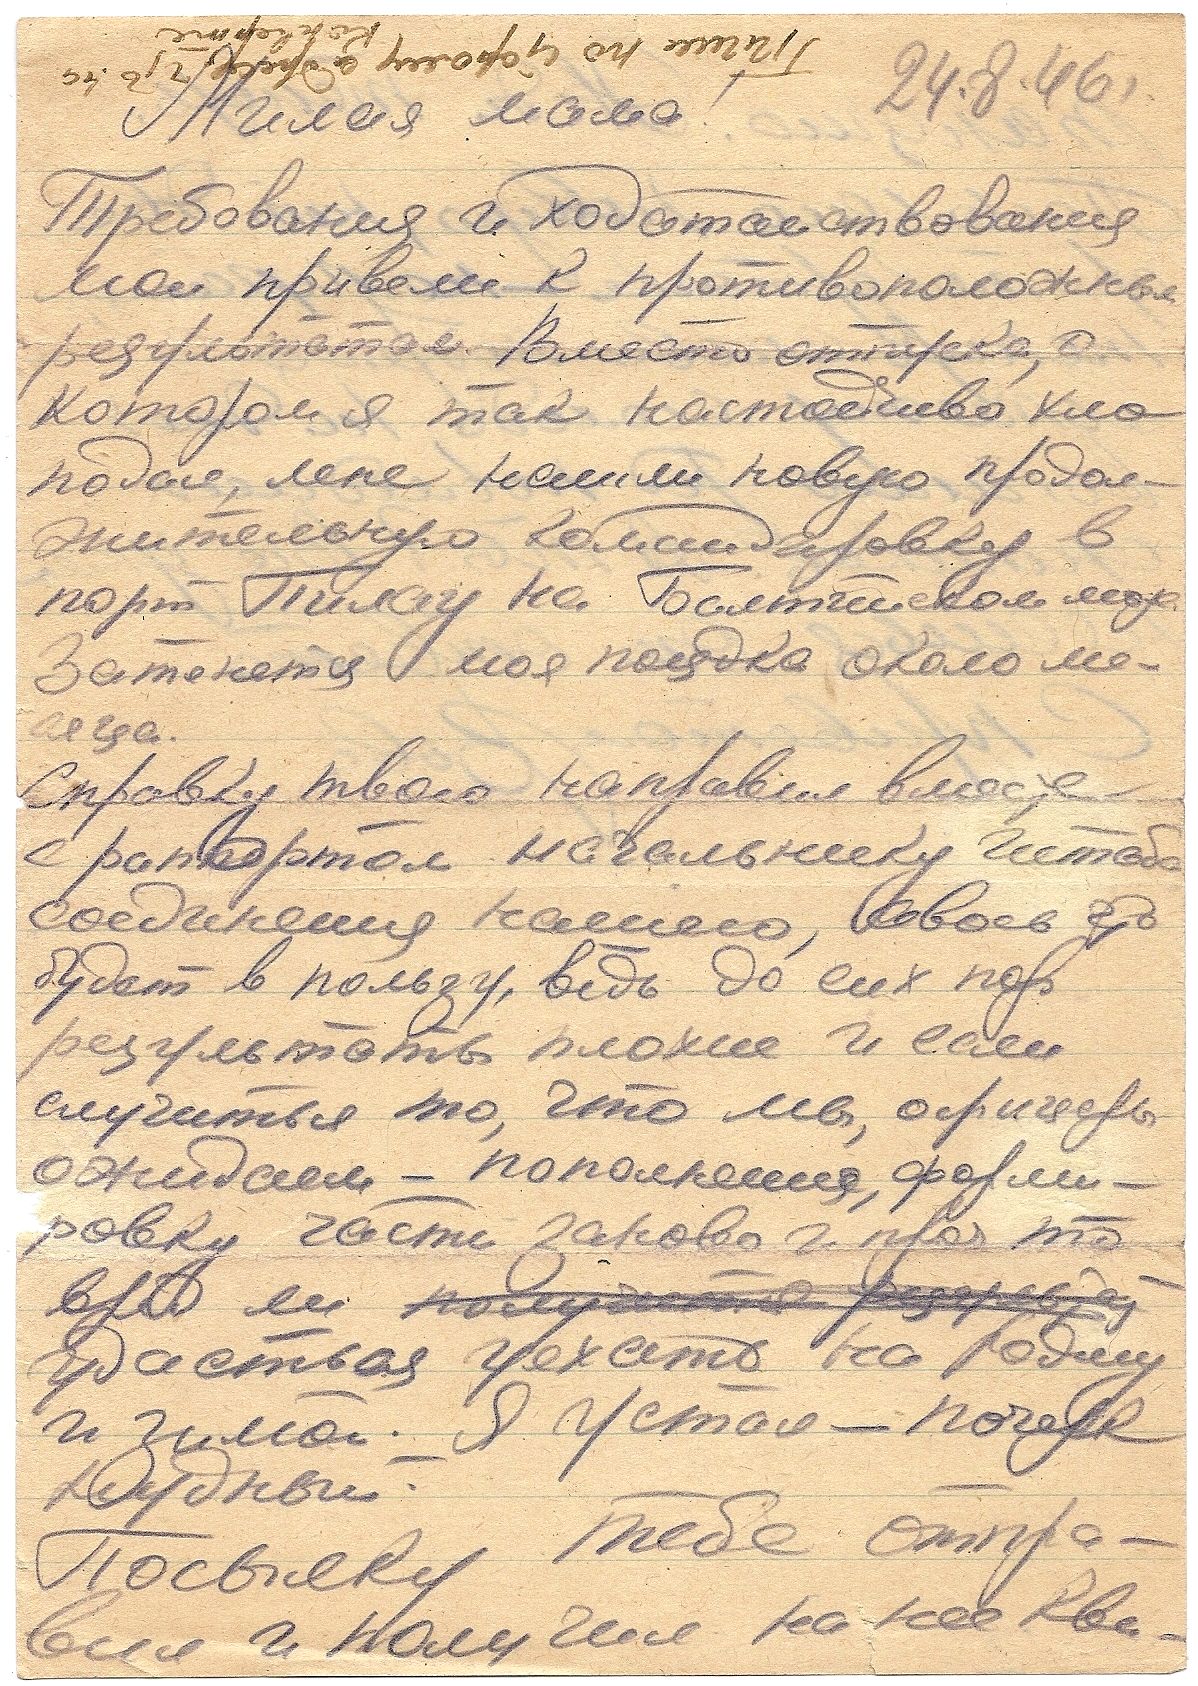 Пиши по старому адресу, т.е. на
конверте
24.8.46 г.
Милая мама!
Требования и ходатайствования
мои привели к противоположным
результатам. Вместо отпуска, о
котором я так настойчиво хло
потал, мне нашли новую продол-
жительную командировку в
порт Пилау на Балтийском море
Затянется моя поездка около ме-
сяца.
Справку твою направил вместе
с рапортом начальнику штаба
соединения нашего, авось это
будет в пользу, ведь до сих пор
результаты плохие и если
случиться то, что мы, офицеры
ожидаем – пополнения, форми-
ровку части заново и проч то
вряд ли
удасться уехать на родину
и зимой. Я устал – почерк
нудный.
Посылку тебе отпра-
вил и получил на нее кви-